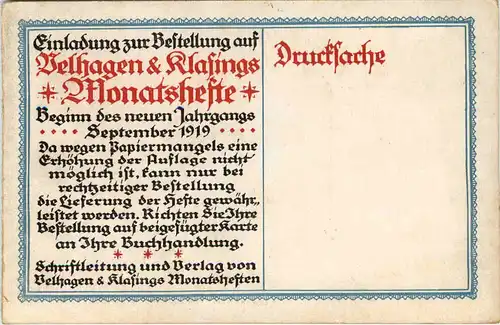 Einladung zur Bestellung auf
Velhagen & Klasings
* Monatshefte *
Beginn des neuen Jahrgangs
.... September 1919 ....
Da wegen Papiermangels eine
Erhöhung der Auflage nicht
möglich ist, kann nur bei
rechtzeitiger Bestellung
die Lieferung der Hefte gewähr-
leistet werden. Richten Sie Ihre
Bestellung auf beigefügter Karte
an Ihre Buchhandlung.
* * *
Schriftleitung und Verlag von
Velhagen & Klasings Monatsheften
Drucksache